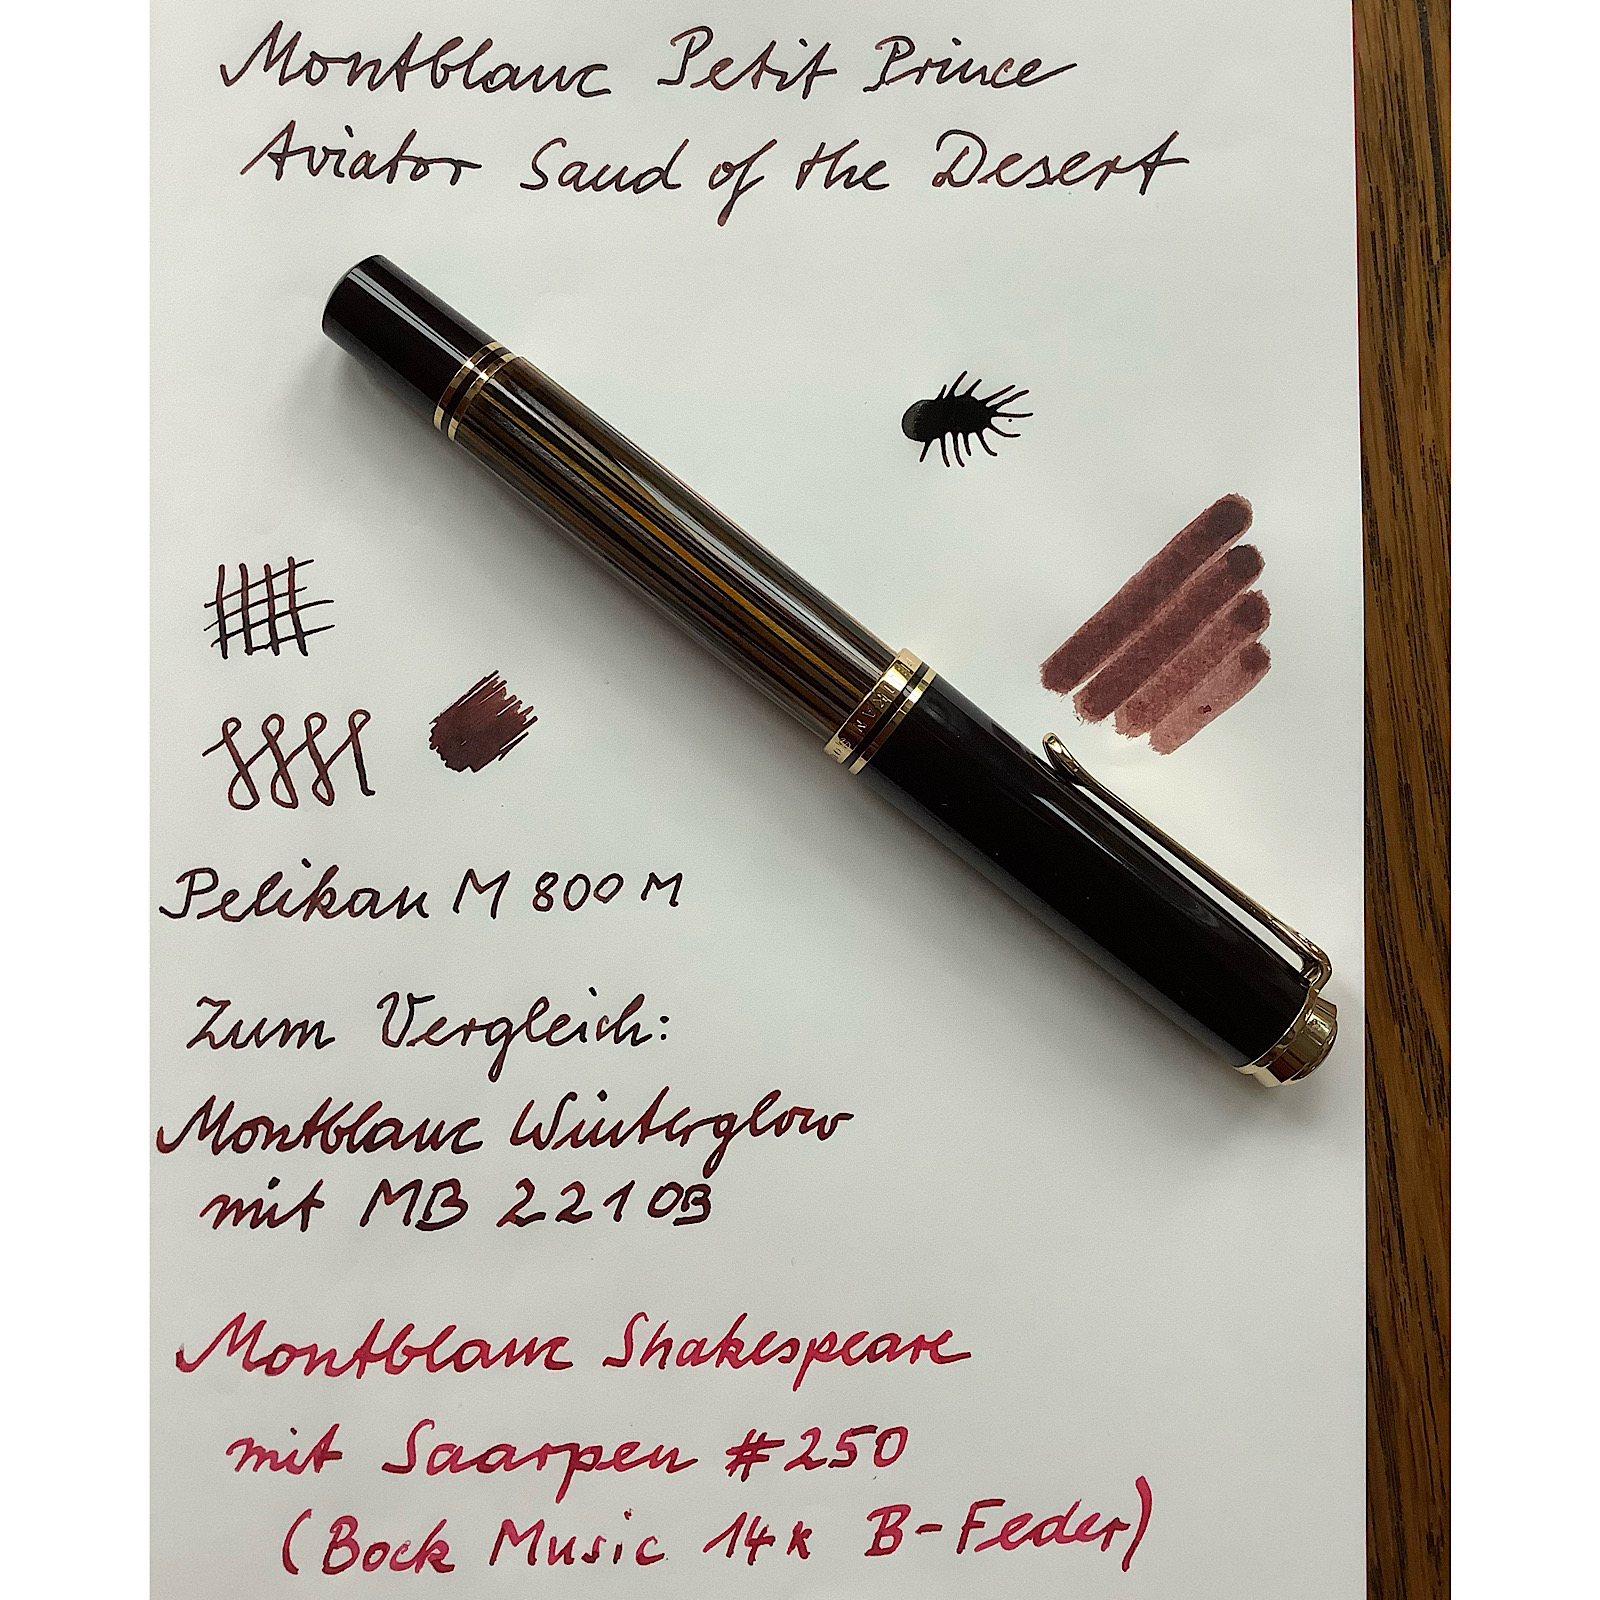 Montblanc Petit Prince
Aviator Sand of the Desert
Pelikan M 800 M
Zum Vergleich:
Montblanc Winterglow
mit MB 221 OB
Montblanc Shakespeare
mit Saarpen #250
(Bock Music 14k B-Feder)